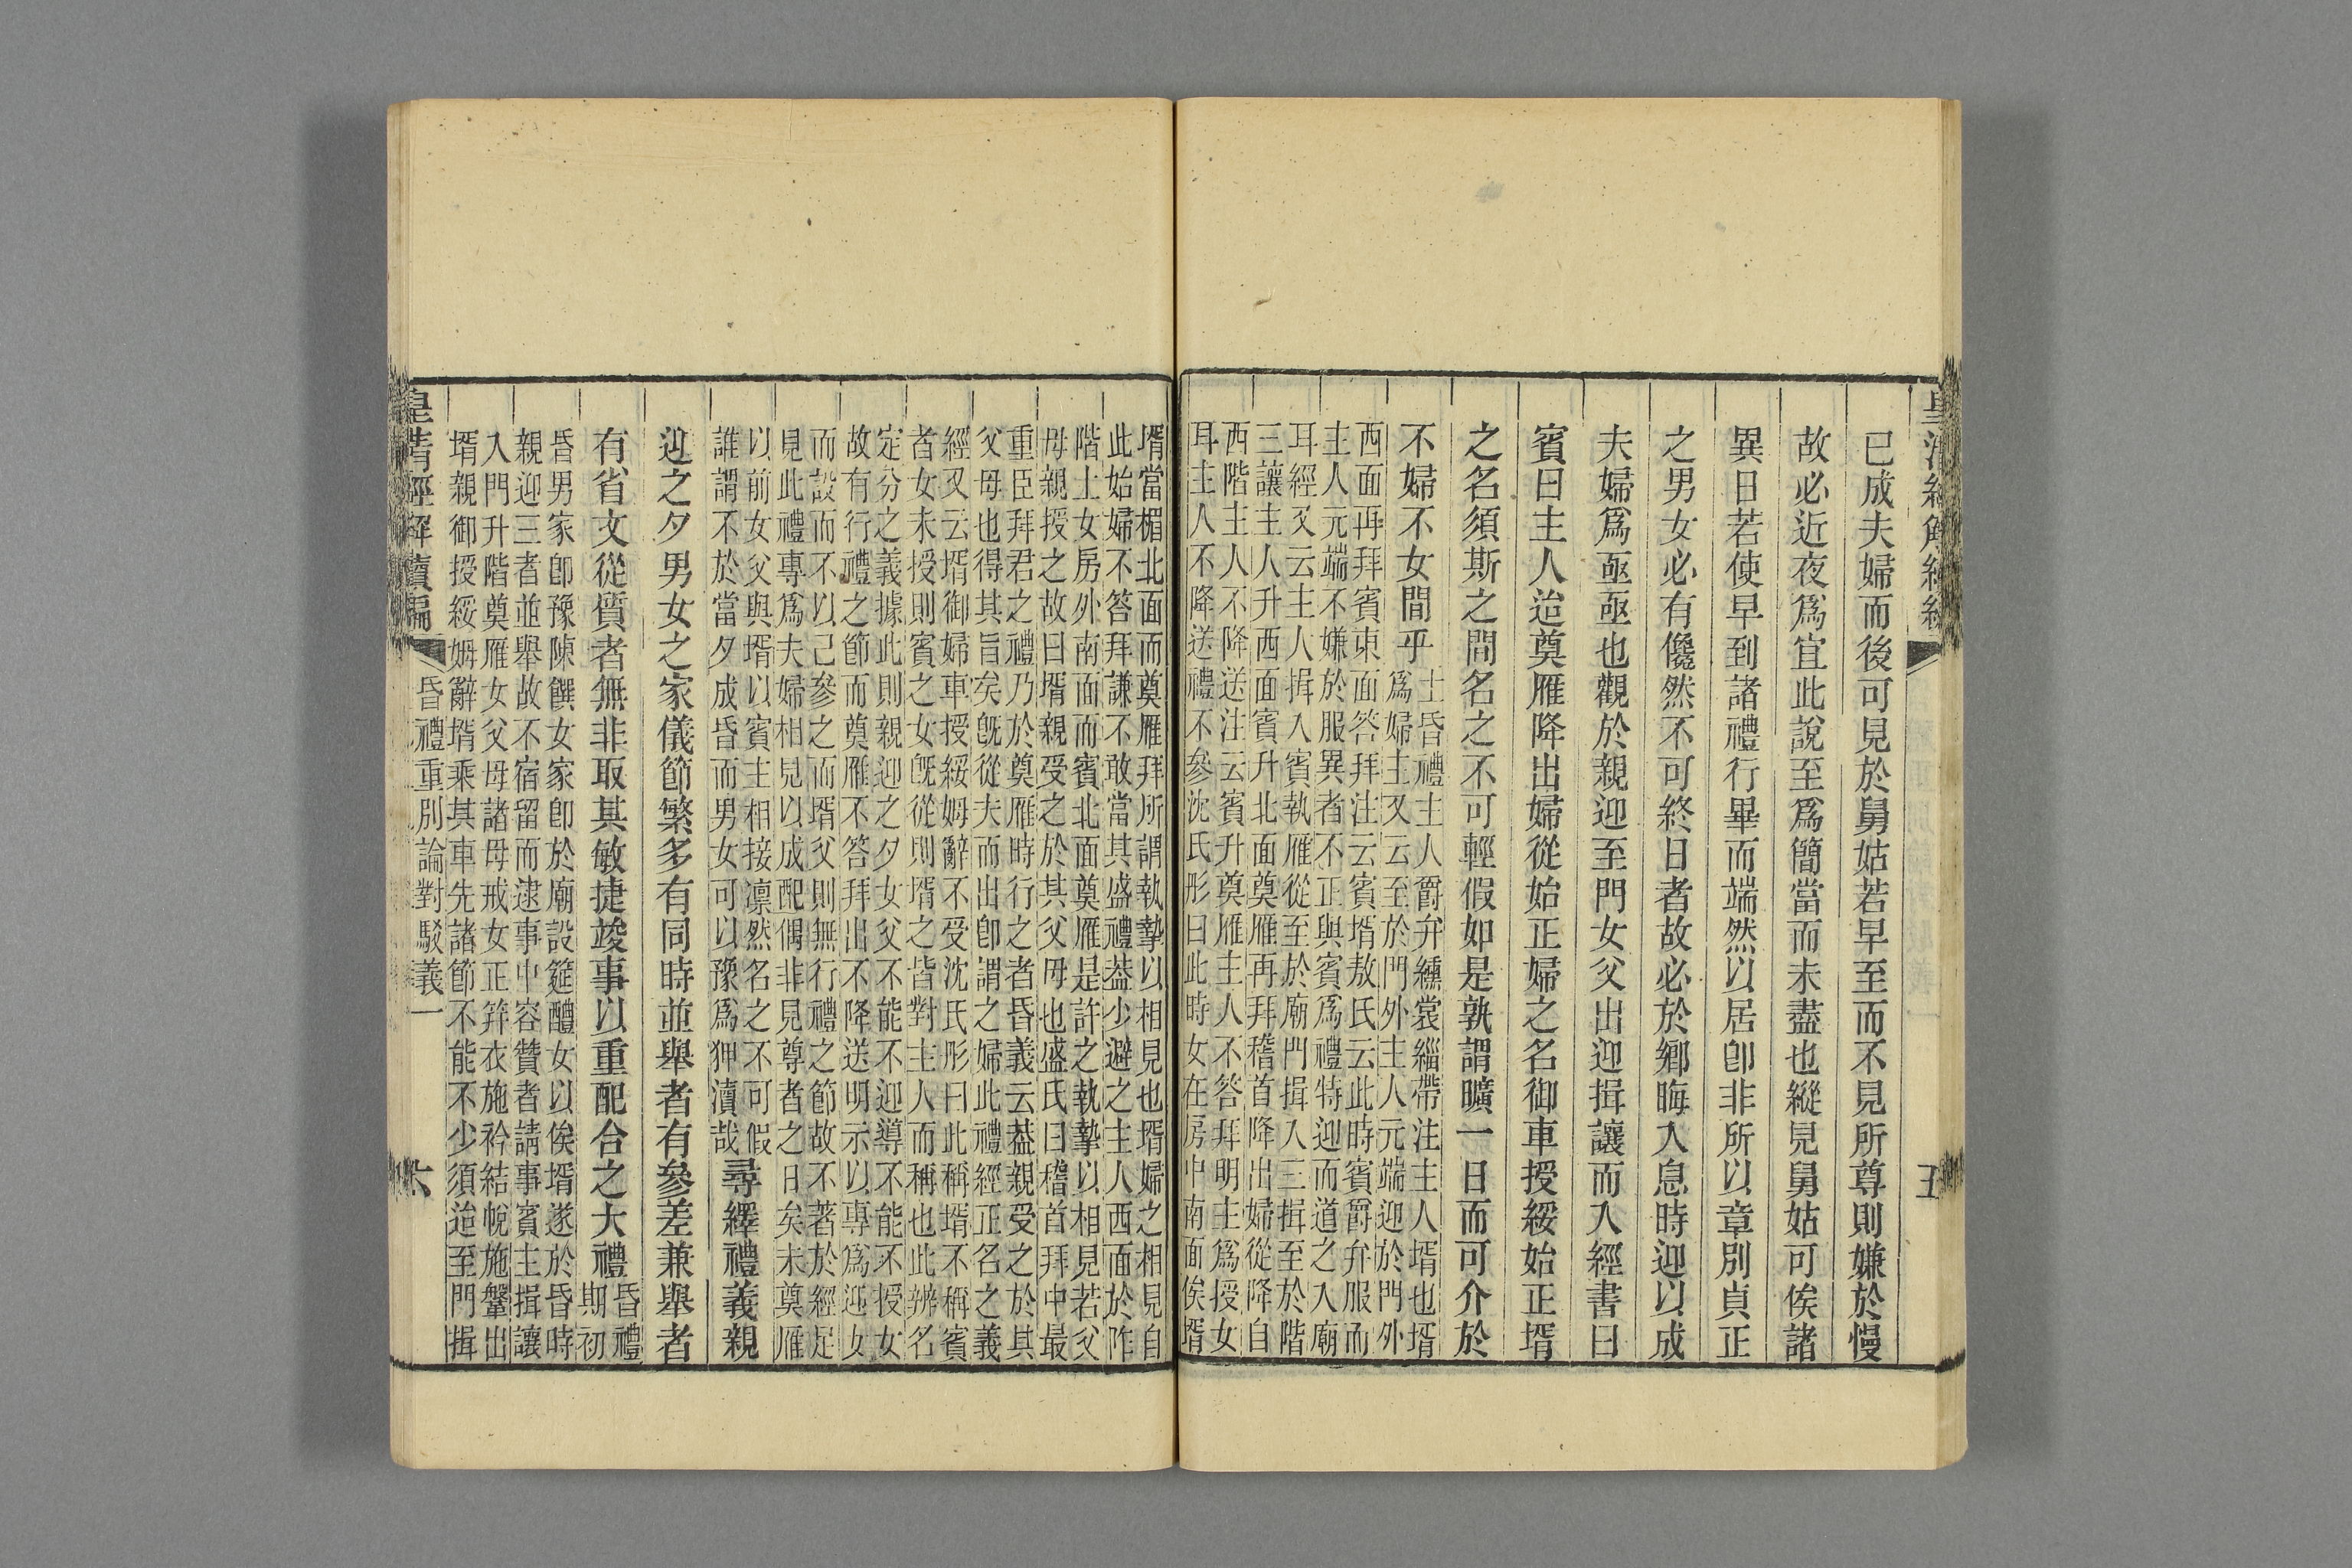 已成夫婦而後可見於舅姑若早至而不見所尊則嫌於慢
故必近夜爲宜此說至爲簡當而未盡也縱見舅姑可俟諸
異日若使早到諸禮行畢而端然以居卽非所以章別貞正
之男女必有儳然不可終日者故必於鄉晦入息時迎以成
夫婦爲亟亟也觀於親迎至門女父出迎揖讓而入經書曰
賓曰主人迨奠雁降出婦從始正婦之名御車授綏始正壻
之名須斯之間名之不可輕假如是孰謂曠一日而可介於
不婦不女間乎
士昏禮主人爵弁纁裳緇帶注主人壻也壻
爲婦主又云至於門外主人元端迎於門外
西面再拜賓東面答拜注云賓壻敖氏云此時賓爵弁服而
主人元端不嫌於服異者不正與賓爲禮特迎而道之入廟
耳經又云主人揖入賓執雁從至於廟門揖入三揖至於階
三讓主人升西面賓升北面奠雁再拜稽首降出婦從降自
西階主人不降送注云賓升奠雁主人不答拜明主爲授女
耳主人不降送禮不參沈氏彤曰此時女在房中南面俟壻
壻當楣北面而奠雁拜所謂執摯以相見也壻婦之相見自
此始婦不答拜謙不敢當其盛禮葢少避之主人西面於阼
階上女房外南面而賓北面奠雁是許之執摯以相見若父
母親授之故曰壻親受之於其父母也盛氏曰稽首拜中最
重臣拜君之禮乃於奠雁時行之者昏義云葢親受之於其
父母也得其旨矣旣從夫而出卽謂之婦此禮經正名之義
經又云壻御婦車授綏姆辭不受沈氏彤曰此稱壻不稱賓
者女未授則賓之女旣從則壻之皆對主人而稱也此辨名
定分之義據此則親迎之夕女父不能不迎導不能不授女
故有行禮之節而奠雁不答拜出不降送明示以專爲迎女
而設而不以己參之而壻父則無行禮之節故不著於經足
見此禮專爲夫婦相見以成配偶非見尊者之日矣未奠雁
以前女父與壻以賓主相接凛然名之不可假
誰謂不於當夕成昏而男女可以豫爲狎瀆哉
尋繹禮義親
迎之夕男女之家儀節繁多有同時並舉者有參差兼舉者
有省文從質者無非取其敏捷竣事以重配合之大禮
昏禮
期初
昏男家卽豫陳饌女家卽於廟設筵醴女以俟壻遂於昏時
親迎三者並舉故不宿留而逮事中容贊者請事賓主揖讓
入門升階奠雁女父母諸母戒女正笄衣施衿結帨施鞶出
壻親御授綏姆辭壻乘其車先諸節不能不少須迨至門揖
皇淸經解續編
昏禮重別論對駁義一
六